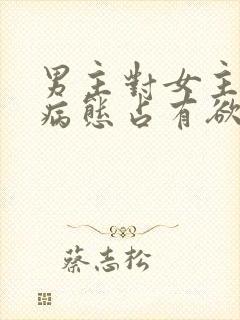 男主對女主
病態占有欲
蔡志松